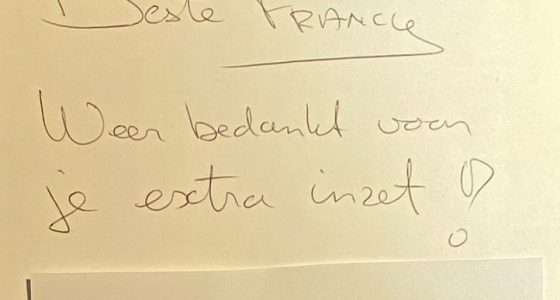 Beste FRANCKY
Weer bedankt voor
je extra inzet !